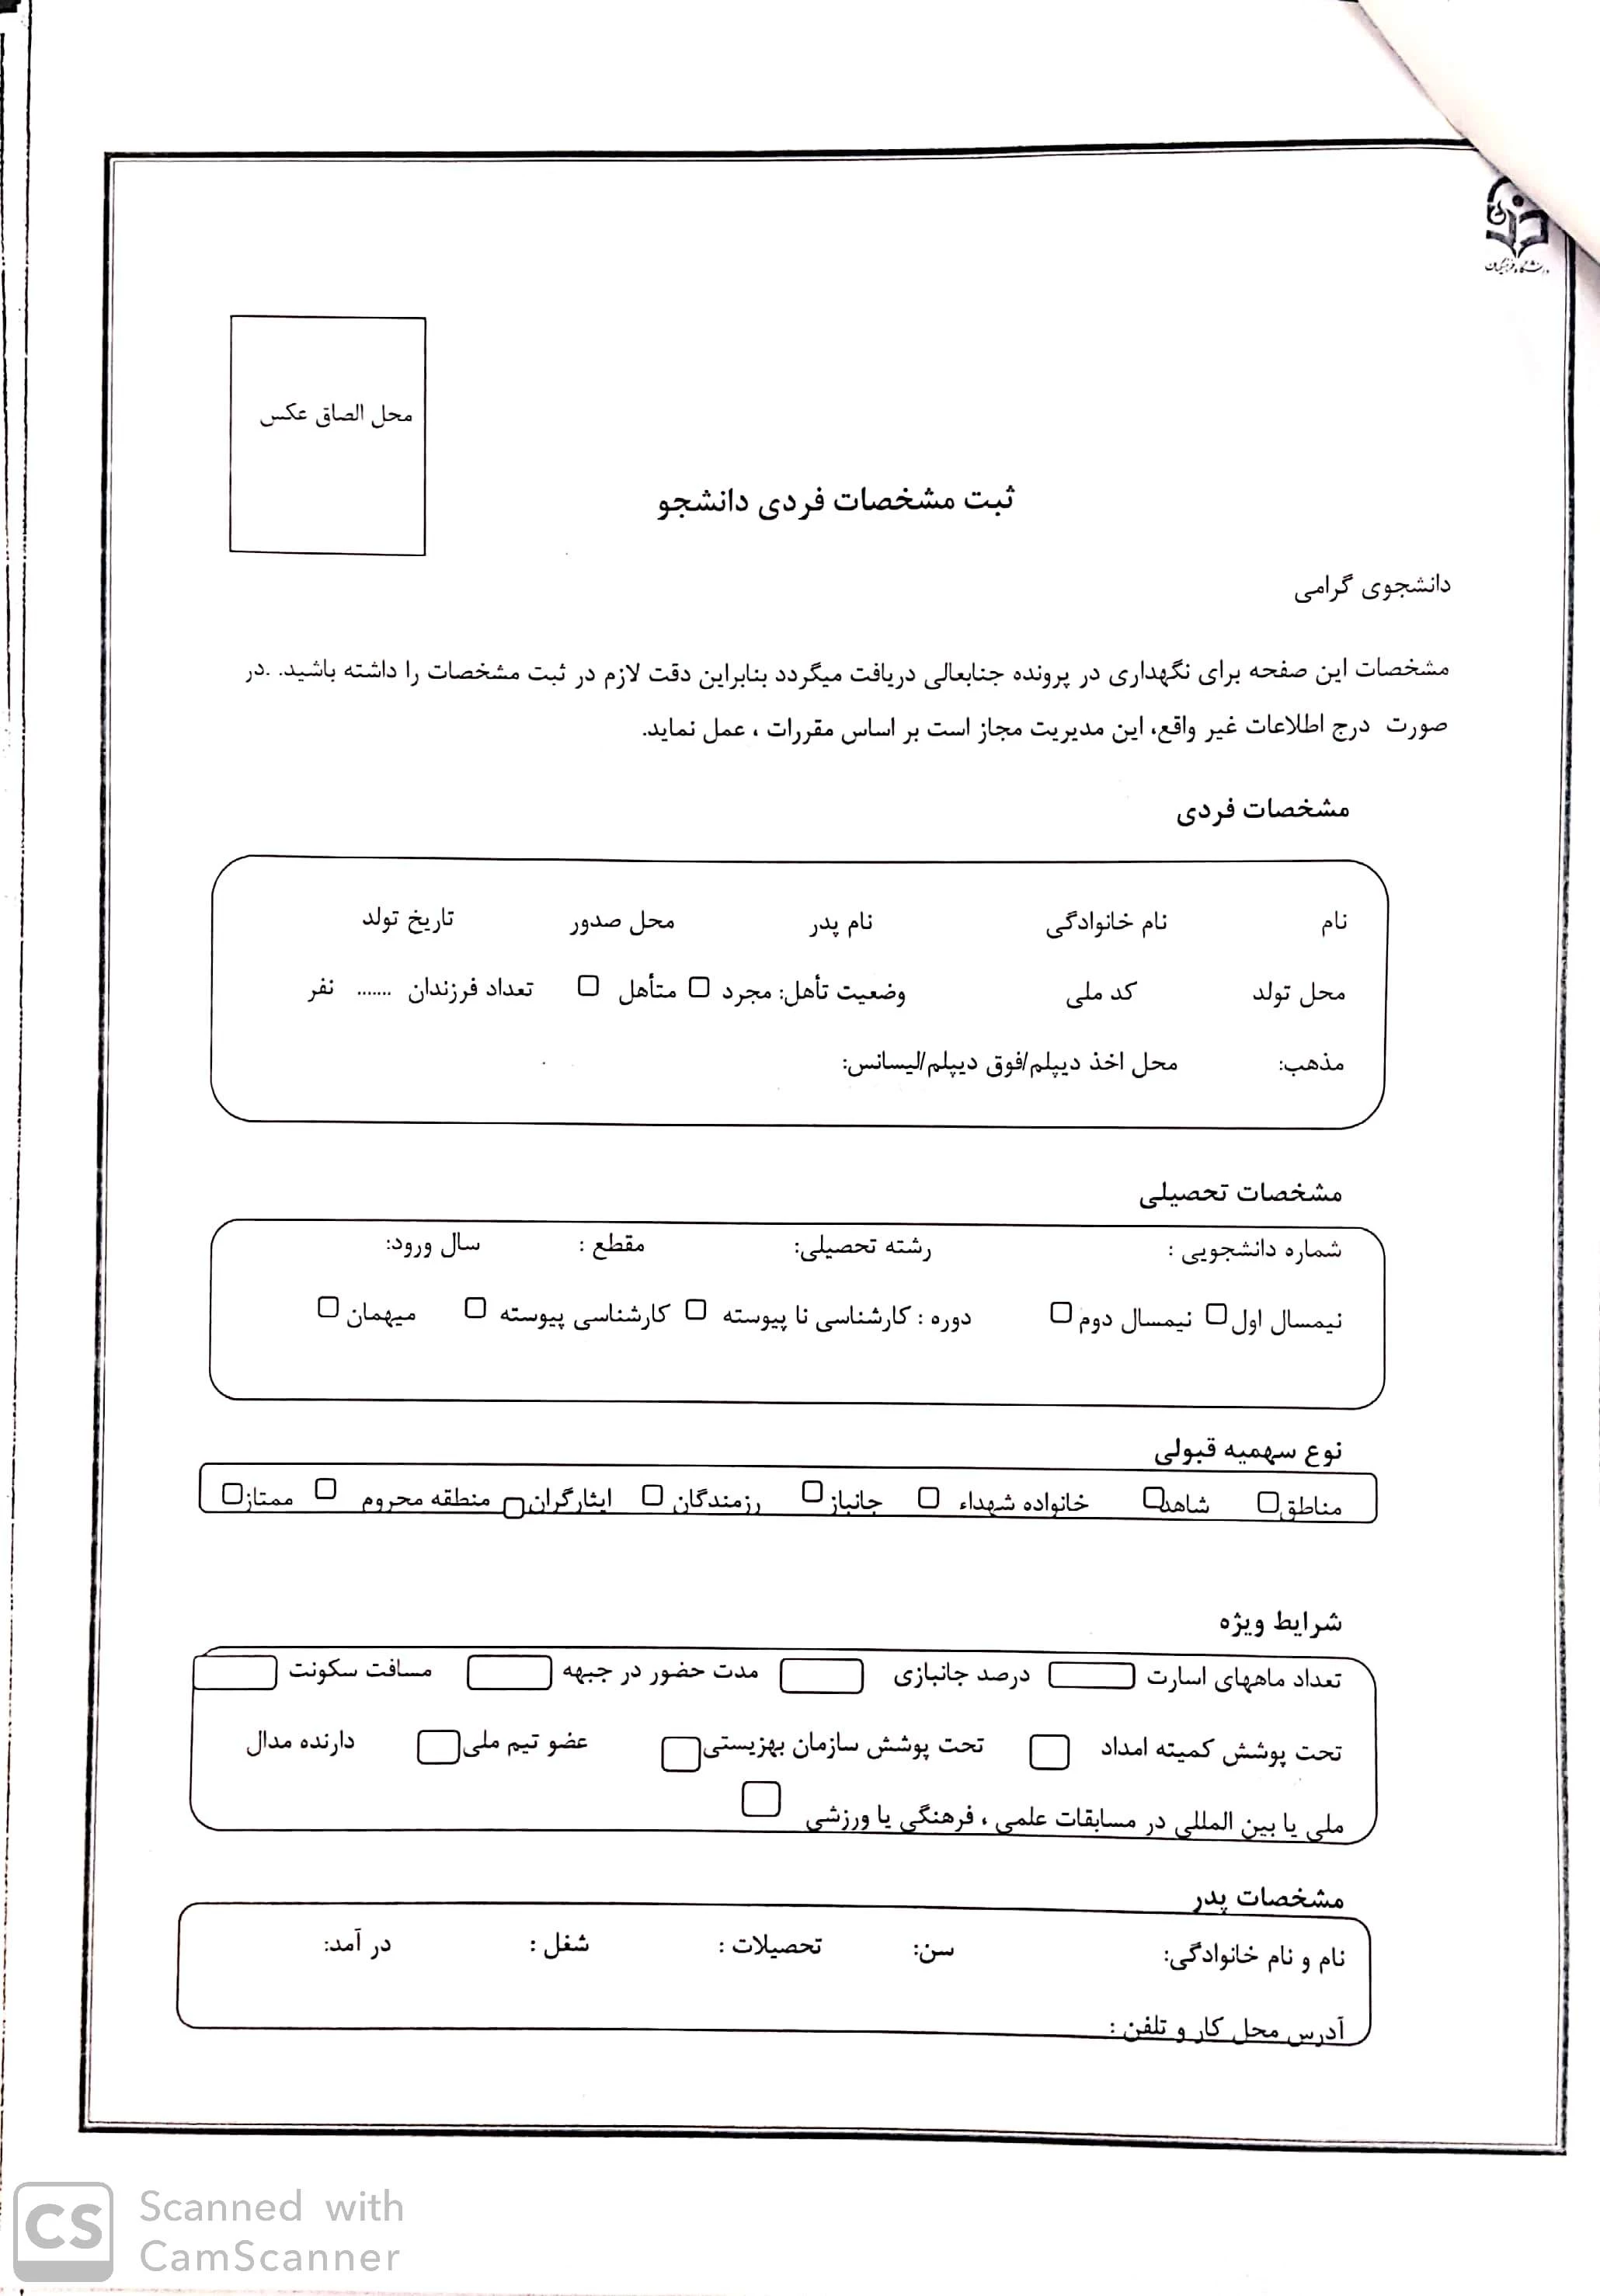 دانشگاه فرهنگیان
محل الصاق عکس
ثبت مشخصات فردی دانشجو
دانشجوی گرامی
مشخصات این صفحه برای نگهداری در پرونده جنابعالی دریافت میگردد بنابراین دقت لازم در ثبت مشخصات را داشته باشید. .در
صورت درج اطلاعات غیر واقع، این مدیریت مجاز است بر اساس مقررات ، عمل نماید.
مشخصات فردی
نام نام خانوادگی نام پدر محل صدور تاریخ تولد
محل تولد کد ملی وضعیت تأهل: مجرد متأهل تعداد فرزندان ....... نفر
مذهب: محل اخذ دیپلم/فوق دیپلم/لیسانس:
مشخصات تحصیلی
شماره دانشجویی : رشته تحصیلی: مقطع : سال ورود:
نیمسال اول نیمسال دوم دوره : کارشناسی نا پیوسته کارشناسی پیوسته میهمان
نوع سهمیه قبولی
مناطق شاهد خانواده شهداء جانباز رزمندگان ایثارگران منطقه محروم ممتاز
شرایط ویژه
تعداد ماههای اسارت درصد جانبازی مدت حضور در جبهه مسافت سکونت
تحت پوشش کمیته امداد تحت پوشش سازمان بهزیستی عضو تیم ملی دارنده مدال
ملی یا بین المللی در مسابقات علمی ، فرهنگی یا ورزشی
مشخصات پدر
نام و نام خانوادگی: سن: تحصیلات : شغل : در آمد:
آدرس محل کار و تلفن :
CS Scanned with
CamScanner